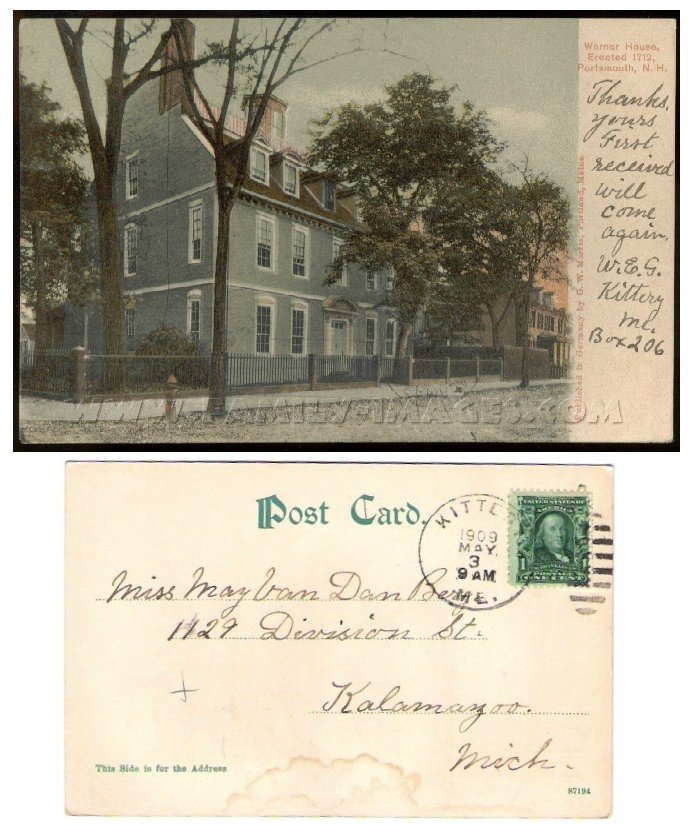 Warner House,
Erected 1712,
Portsmouth, N. H.
Thanks,
yours
First
received
will
come
again.
W.E.G.
Kittery
Me.
Box 206
Published in Germany by G. W. Morris, Portland, Maine.
WWW.FAMILY-IMAGES.COM
Post Card.
KITTE
1909
MAY
3
9 AM
ME.
UNITED STATES OF
AMERICA
FRANKLIN
POSTAGE
1 ONE CENT 1
Miss May Van Dan Berg
1129 Division St.
Kalamazoo.
Mich.
This Side is for the Address
87194